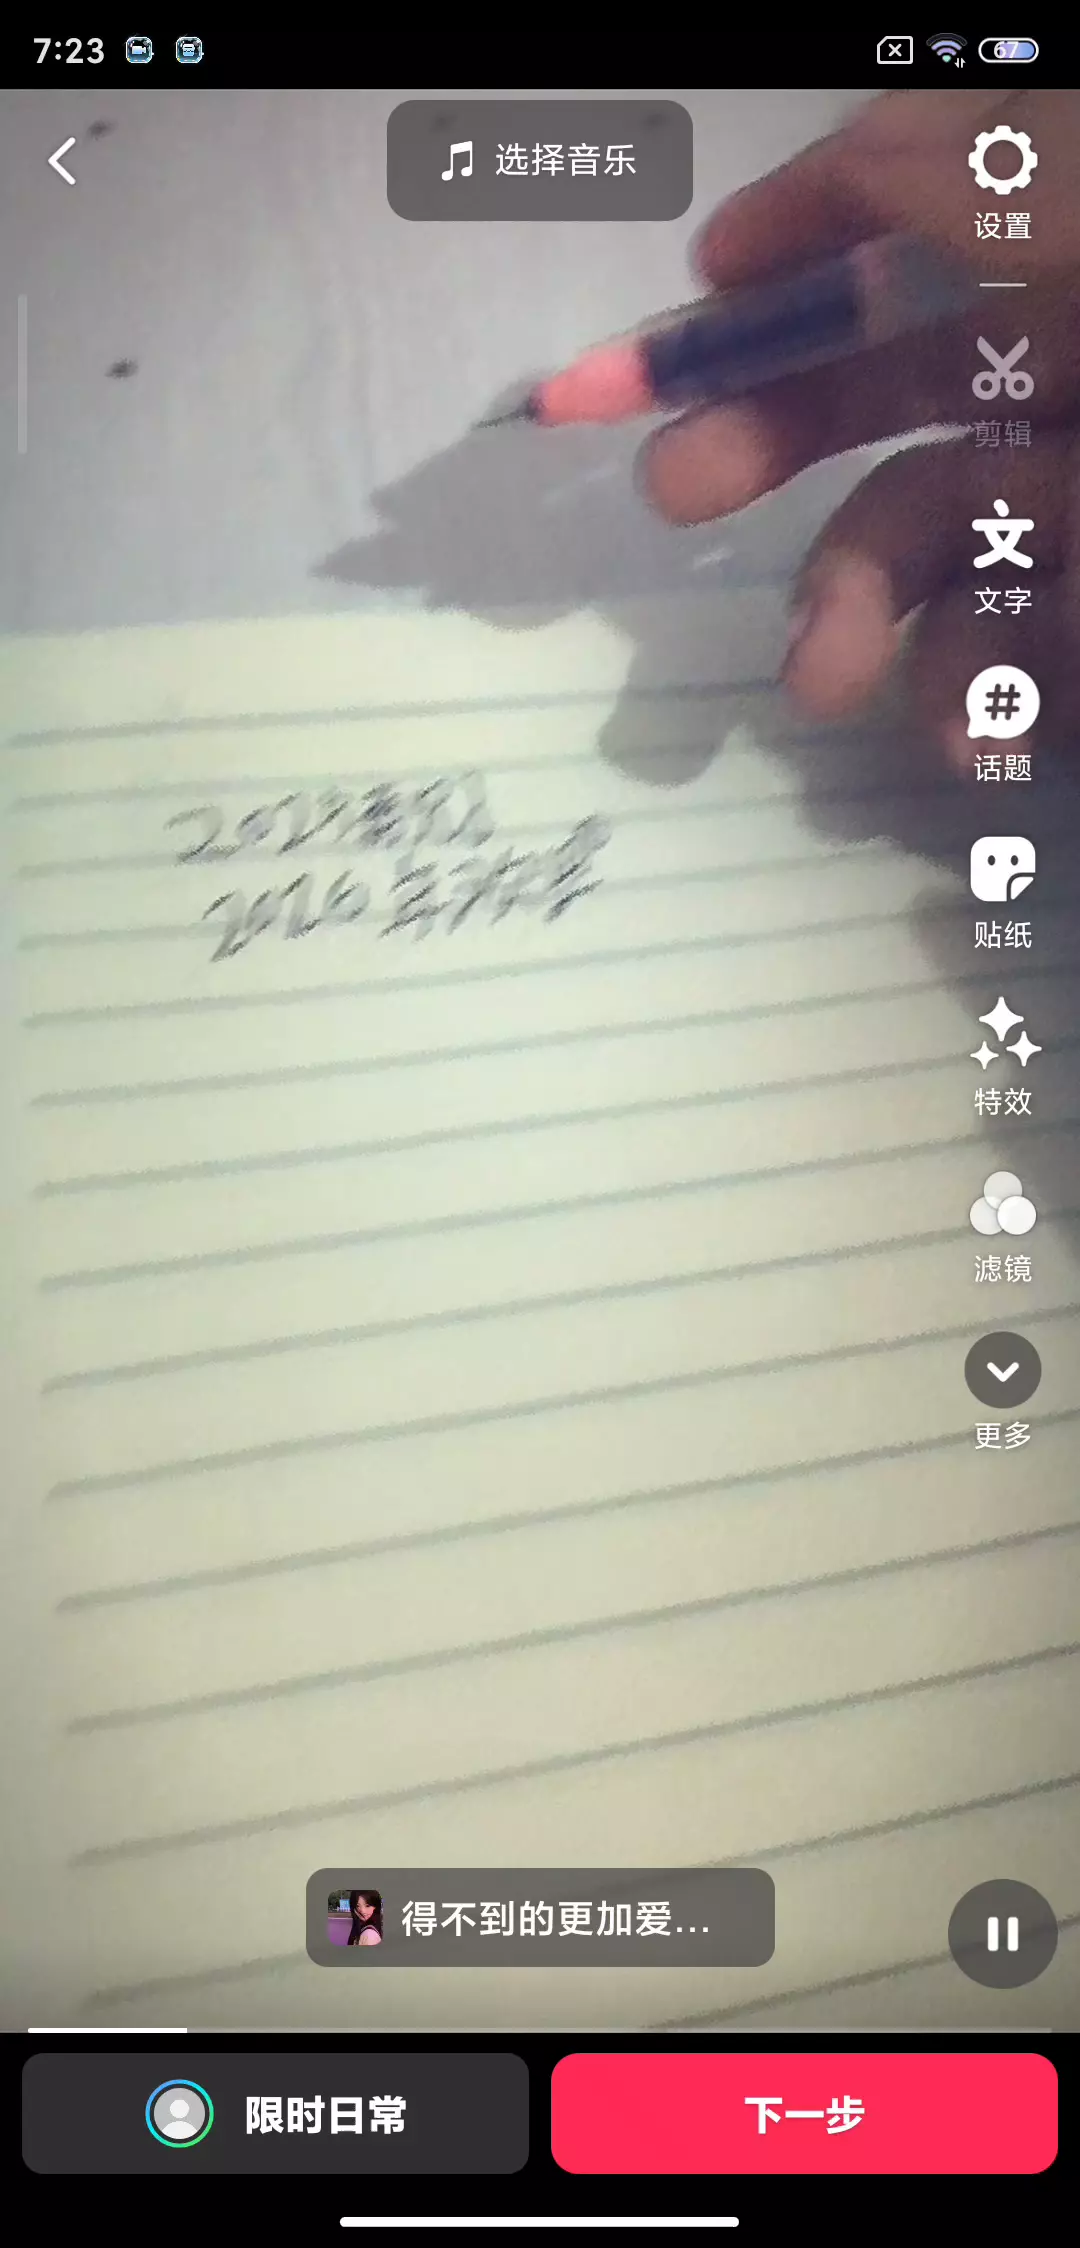 7:23
67
选择音乐
设置
剪辑
文字
话题
贴纸
特效
滤镜
更多
2026
得不到的更加爱...
限时日常
下一步